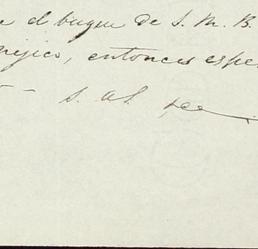 el buque de S. M. B.
mejico, entonces espe
S. al